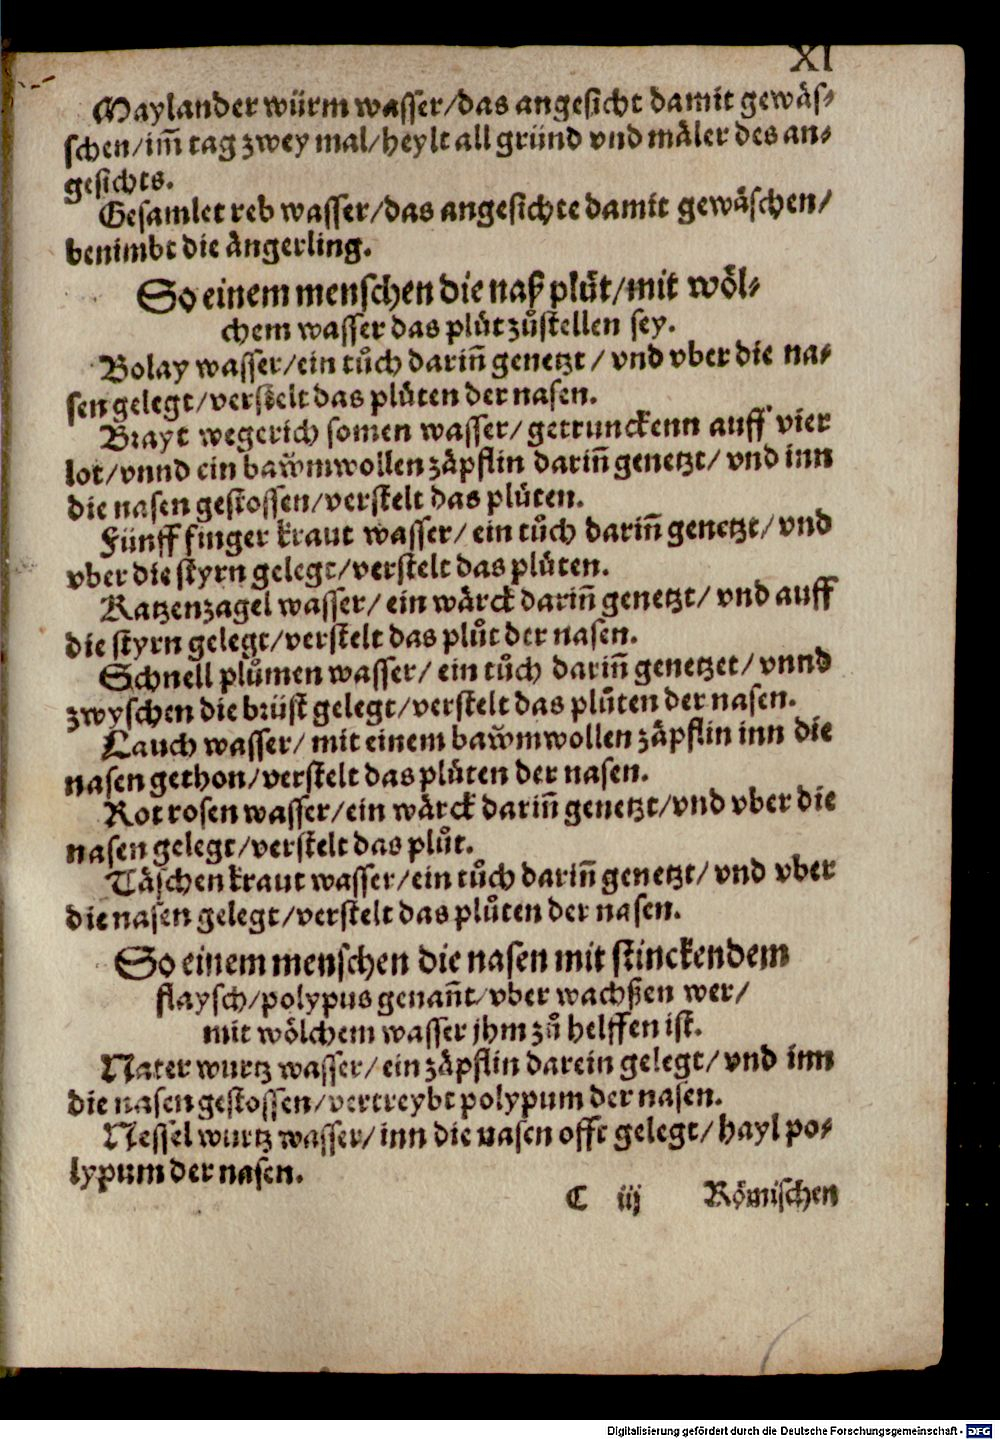 XI
Maylander würm wasser/das angesicht damit gewäs-
schen/im̃ tag zwey mal/heylt all gründ vnd mäler des an-
gesichts.
Gesamlet reb wasser/das angesichte damit gewäschen/
benimbt die ångerling.
So einem menschen die naß plüt/mit wöl-
chem wasser das plüt zůstellen sey.
Bolay wasser/ein tůch darin̄ genetzt/ vnd vber die na-
sen gelegt/verstelt das plüten der nasen.
Brayt wegerich somen wasser/ getrunckenn auff vier
lot/vnnd ein baw̆mwollen zäpflin darin̄ genetzt/ vnd inn
die nasen gestossen/verstelt das plüten.
Fünff finger kraut wasser/ ein tůch darin̄ genetzt/ vnd
vber die styrn gelegt/verstelt das plüten.
Katzenzagel wasser/ ein wärck darin̄ genetzt/ vnd auff
die styrn gelegt/verstelt das plůt der nasen.
Schnell plůmen wasser/ ein tůch darin̄ genetzet/ vnnd
zwyschen die brüst gelegt/verstelt das plüten der nasen.
Lauch wasser/ mit einem baw̆mwollen zäpflin inn die
nasen gethon/verstelt das plüten der nasen.
Rot rosen wasser/ein wärck darin̄ genetzt/vnd vber die
nasen gelegt/verstelt das plůt.
Täschen kraut wasser/ein tůch darin̄ genetzt/ vnd vber
die nasen gelegt/verstelt das plůten der nasen.
So einem menschen die nasen mit stinckendem
flaysch/polypus genan̄t/vber wachßen wer/
mit wölchem wasser jhm zů helffen ist.
Nater wurtz wasser/ein zäpflin darein gelegt/vnd inn
die nasen gestossen/vertreybt polypum der nasen.
Nessel wurtz wasser/inn die nasen offt gelegt/hayl po-
lypum der nasen.
C iij Römischen
Digitalisierung gefördert durch die Deutsche Forschungsgemeinschaft - DFG